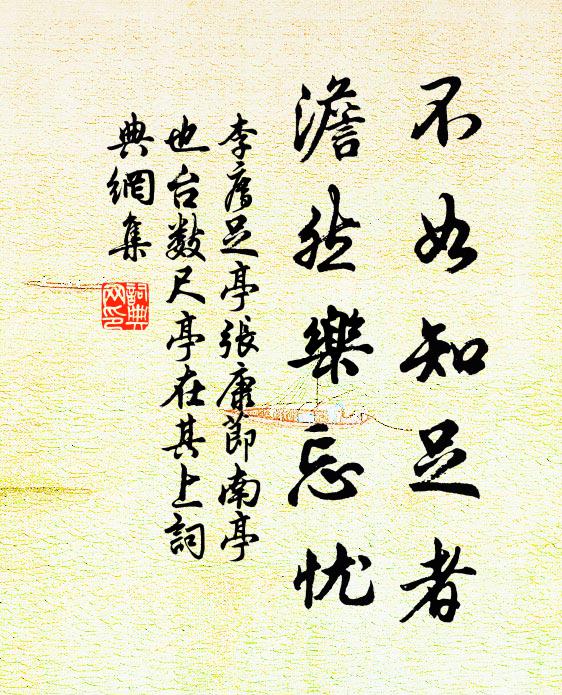 不如知足者
澹然樂忘忧
李廌足亭張康節南亭
也台数尺亭在其上詞
典網集
詞典
网印